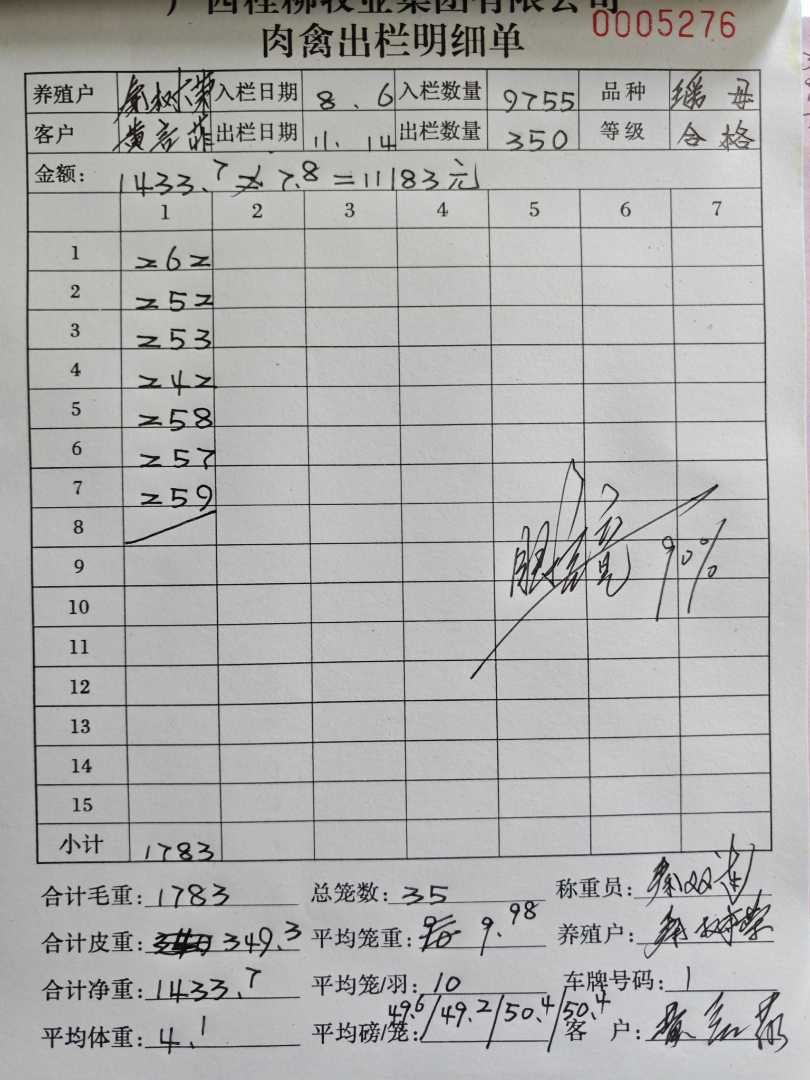 广西桂柳牧业集团有限公司
肉禽出栏明细单 0005276
养殖户 入栏日期 8.6 入栏数量 9755 品种
客户 出栏日期 11.14 出栏数量 350 等级 合格
金额: 1433.7 × 7.8 = 11183元
1 2 3 4 5 6 7
1 262
2 252
3 253
4 242
5 258
6 257
7 259
8
9
10
11
12
13
14
15
90%
小计 1783
合计毛重: 1783 总笼数: 35 称重员:
合计皮重: 349.3 平均笼重: 9.98 养殖户:
合计净重: 1433.7 平均笼/羽: 10 车牌号码: 1
平均体重: 4.1 平均磅/笼: 49.6/49.2/50.4/50.4 客户: